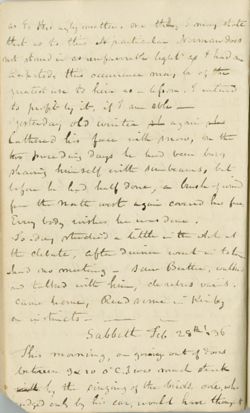 as to this ugly matter. one thing I may state
that as to this particular Norman does
not stand in as unfavorable light as I had
this occurrence may be of the
greatest use to him as a lesson. I intend
to profit by it, if I am able —
Yesterday old winter again
lathered his face with snow, on the
two preceding days he had been busy
shaving himself with sunbeams, but
before he had half done, a brush of wind
from the north west again covered his face
Every body wishes he was done.
To-day attended a little in the at
the debate, after dinner went in to
had no meeting — saw Butler, walked
and talked with him, declares
came home, Read some in Kirby
on instincts —
Sabbath Feb 28th 36
This morning, on going out of doors
between 9 & 10 o'C. I was much struck
by the singing of the birds. one, who
judged only by his ear, would have thought